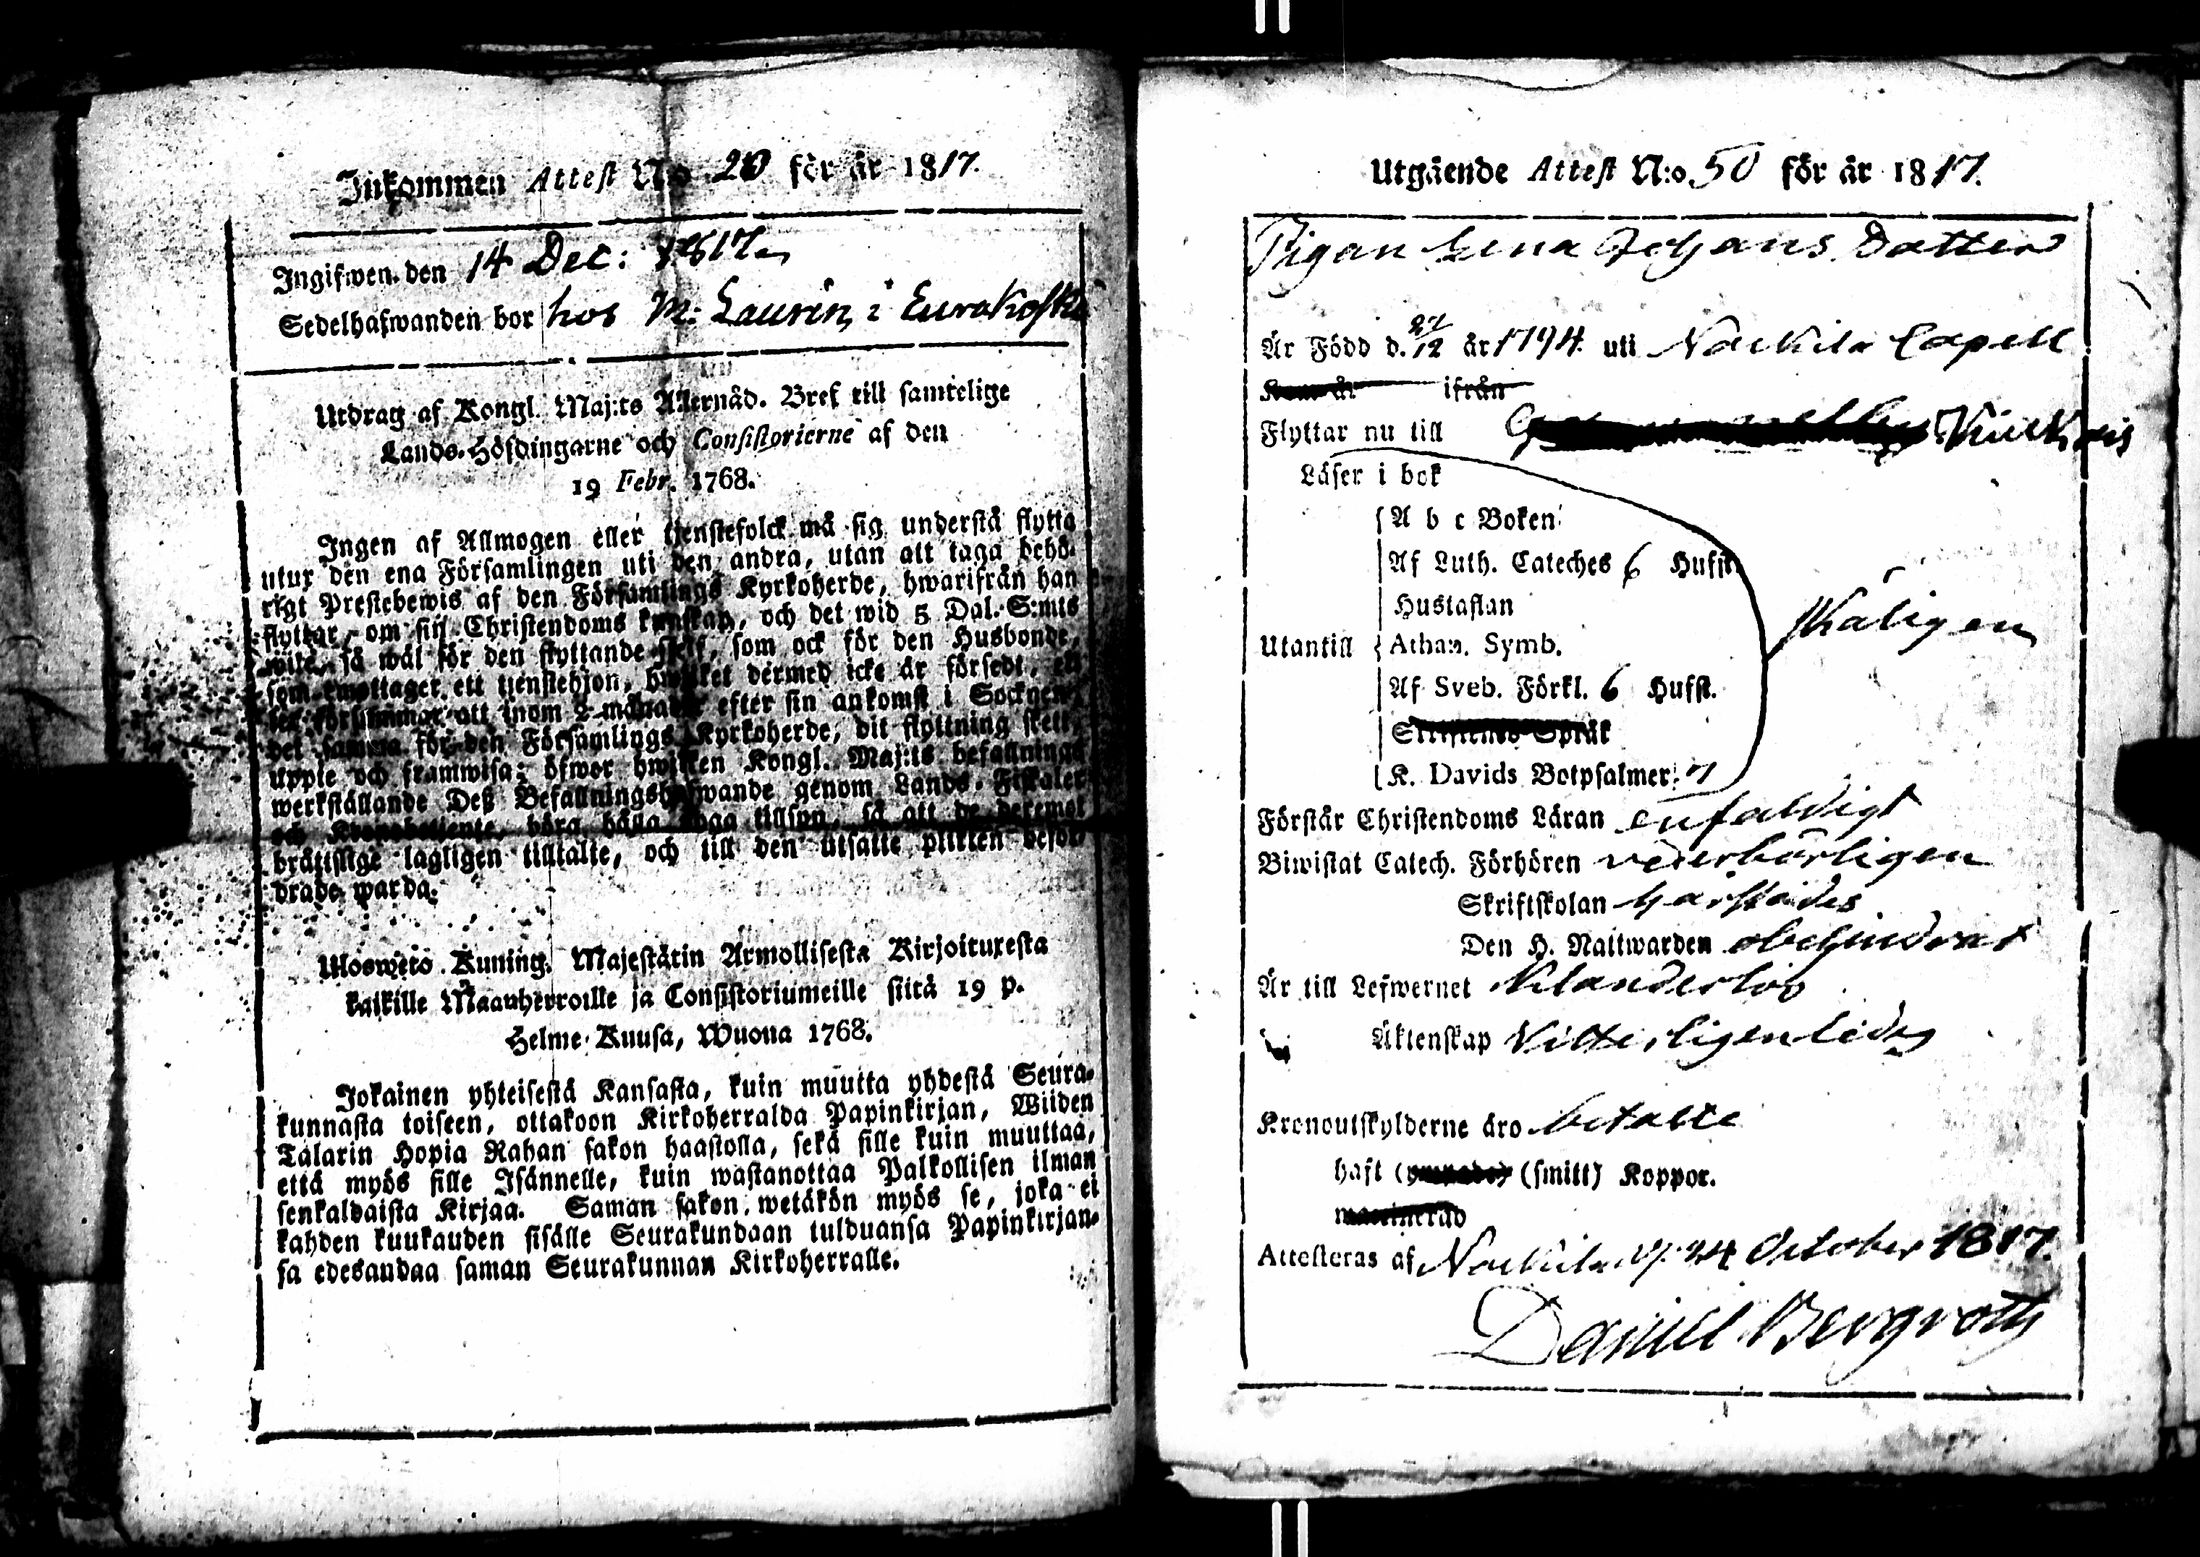 Inkommen Attest N:o 20 för år 1817.
Ingifwen den 14 Dec: 1817.
Sedelhafwanden bor hos M: Laurin, i Eurakoski
Utdrag af Kongl. Maj:ts Allernåd. Bref till samtelige
Lands-Höfdingarne och Consistorierne af den
19 Febr. 1768.
Ingen af Allmogen eller tjenstefolck må sig understå flytta
utur den ena Församlingen uti den andra, utan att taga behö-
rigt Prestebewis af den Församlings Kyrkoherde, hwarifrån han
flyttar, om sin Christendoms kunskap, och det wid 5 Dal. S:mts
wite, så wäl för den flyttande sielf, som ock för den Husbonde,
som emottager ett tjenstehjon, hwilket dermed icke är försedt, el-
ler försummar att inom 2 månader efter sin ankomst i Socknen,
det samma för den Församlings Kyrkoherde, dit flyttning skett,
uppte och framwisa; öfwer hwilken Kongl. Maj:ts befallnings
werkställande Deß Befallningshafwande genom Lands-Fiskaler
och Kronobetjente, böra hålla noga tillsyn, så att de deremot
bråttslige lagligen tilltalte, och till den utsatte plikten befor-
drade warda.
Ulosweto Kuning. Majestätin Armollisesta Kirjoituxesta
kaikille Maauherroille ja Consistoriumeille siitä 19 p.
Helme-Kuusa, Wuona 1768.
Jokainen yhteisestä Kansasta, kuin muutta yhdestä Seura-
kunnasta toiseen, ottakoon Kirkoherralda Papinkirjan, Wiiden
Talarin Hopia Rahan sakon haastolla, sekä sille kuin muuttaa,
että myös sille Isännelle, kuin wastanottaa Palkollisen ilman
senkaldaista Kirjaa. Saman sakon wetäkön myös se, joka ei
kahden kuukauden sisälle Seurakundaan tulduansa Papinkirjan-
sa edesandaa saman Seurakunnan Kirkoherralle.
Utgående Attest N:o 50 för år 1817.
Pigan Lena Johans Dotter
Är Född d. 27/12 år 1794. uti Nackila Capell
Kom år ifrån
Flyttar nu till Kiukais
Läser i bok
A b c Boken
Af Luth. Cateches 6 Hufst.
Hustaflan
Utantill Athan. Symb. skäligen
Af Sveb. Förkl. 6 Hufst.
Skriftenes Språk
K. Davids Botpsalmer. 7
Förstår Christendoms Läran enfaldigt
Biwistat Catech. Förhören vederbörligen
Skriftskolan härstädes
Den H. Nattwarden obehindrat
Är till Lefwernet klanderlös
Äktenskap Vitterligen ledig
Kronoutskylderne äro betalte
haft (ympade) (smitt) Koppor.
vaccinerad
Attesteras af Nackila d. 24 October 1817.
Daniel Bergroth